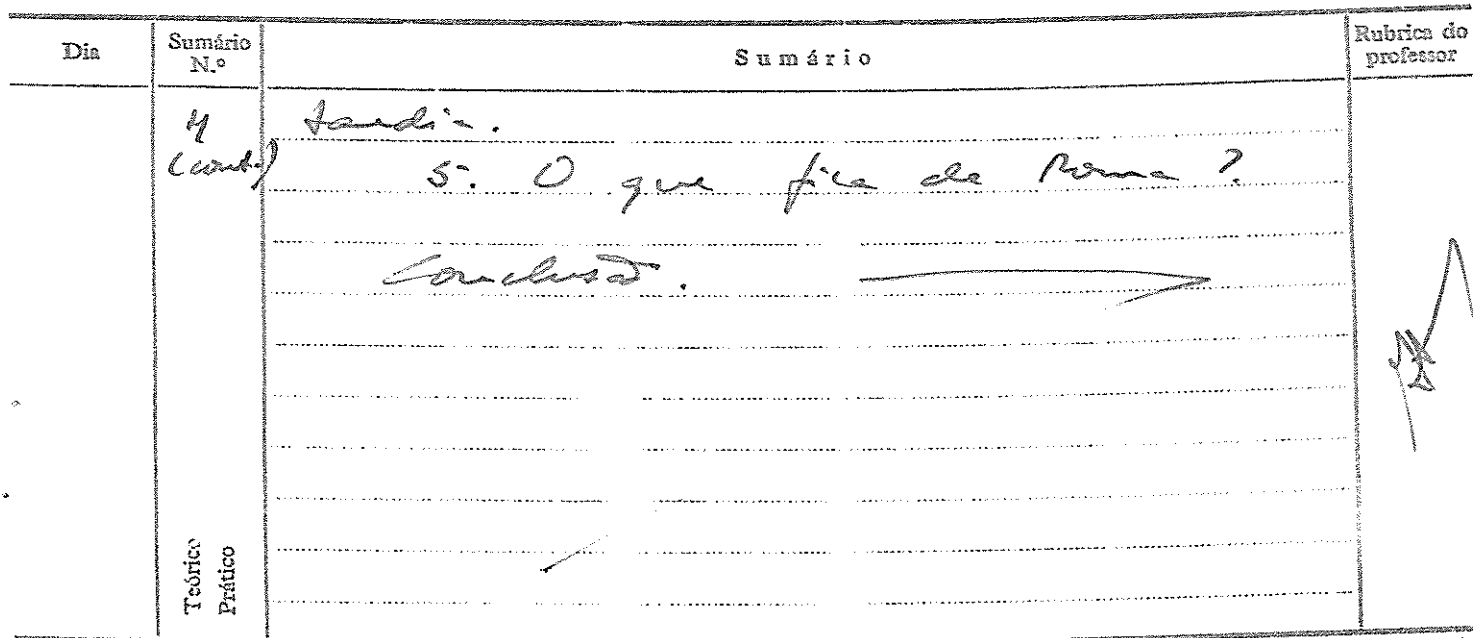 Dia
Sumário N.º
Sumário
Rubrica do professor
4 (cont.)
tardia.
5. O que fica de Roma?
Conclusão.
Teórico
Prático